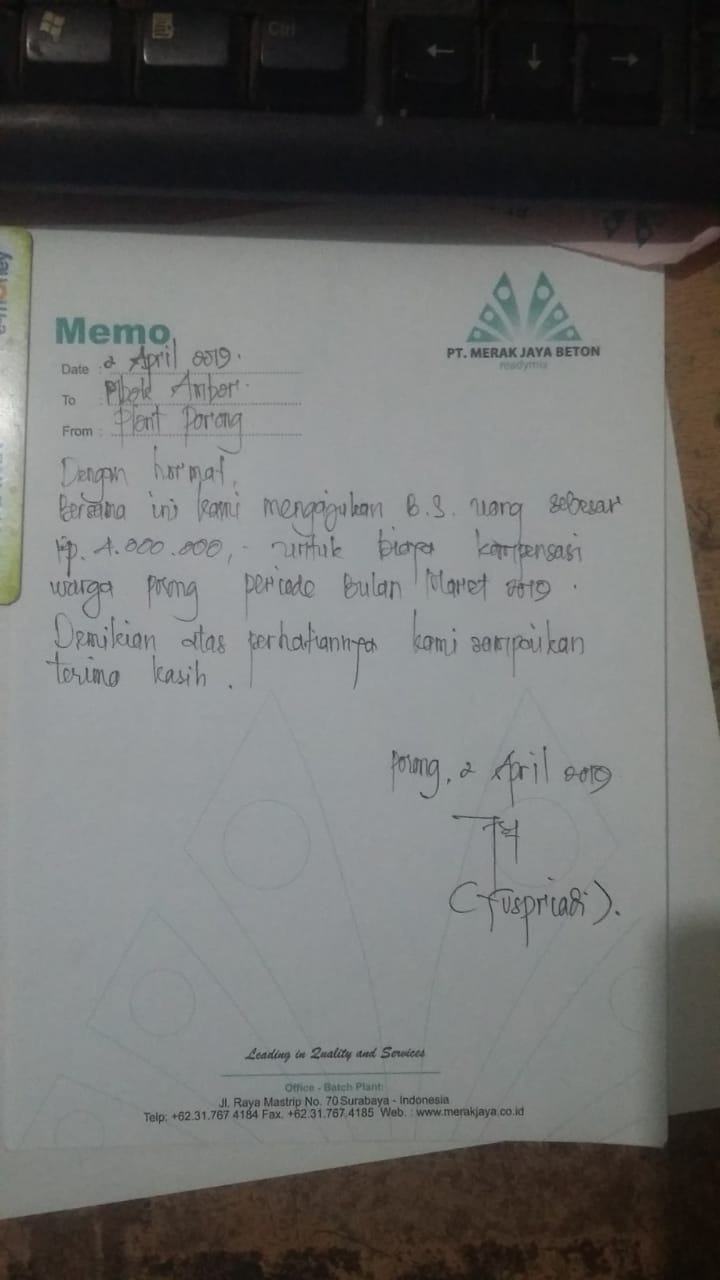 Ctrl
e-money
Memo
PT. MERAK JAYA BETON
readymix
Date : 2 April 2019.
To : Mbak Ambar.
From : Plant Porong
Dengan hormat,
Bersama ini kami mengajukan B.S. uang sebesar
Rp. 4.000.000,- untuk biaya kompensasi
warga porong periode Bulan Maret 2019.
Demikian atas perhatiannya kami sampaikan
terima kasih.
Porong, 2 April 2019
(Yuspriadi).
Leading in Quality and Services
Office - Batch Plant:
Jl. Raya Mastrip No. 70 Surabaya - Indonesia
Telp: +62.31.767 4184 Fax. +62.31.767.4185 Web. : www.merakjaya.co.id